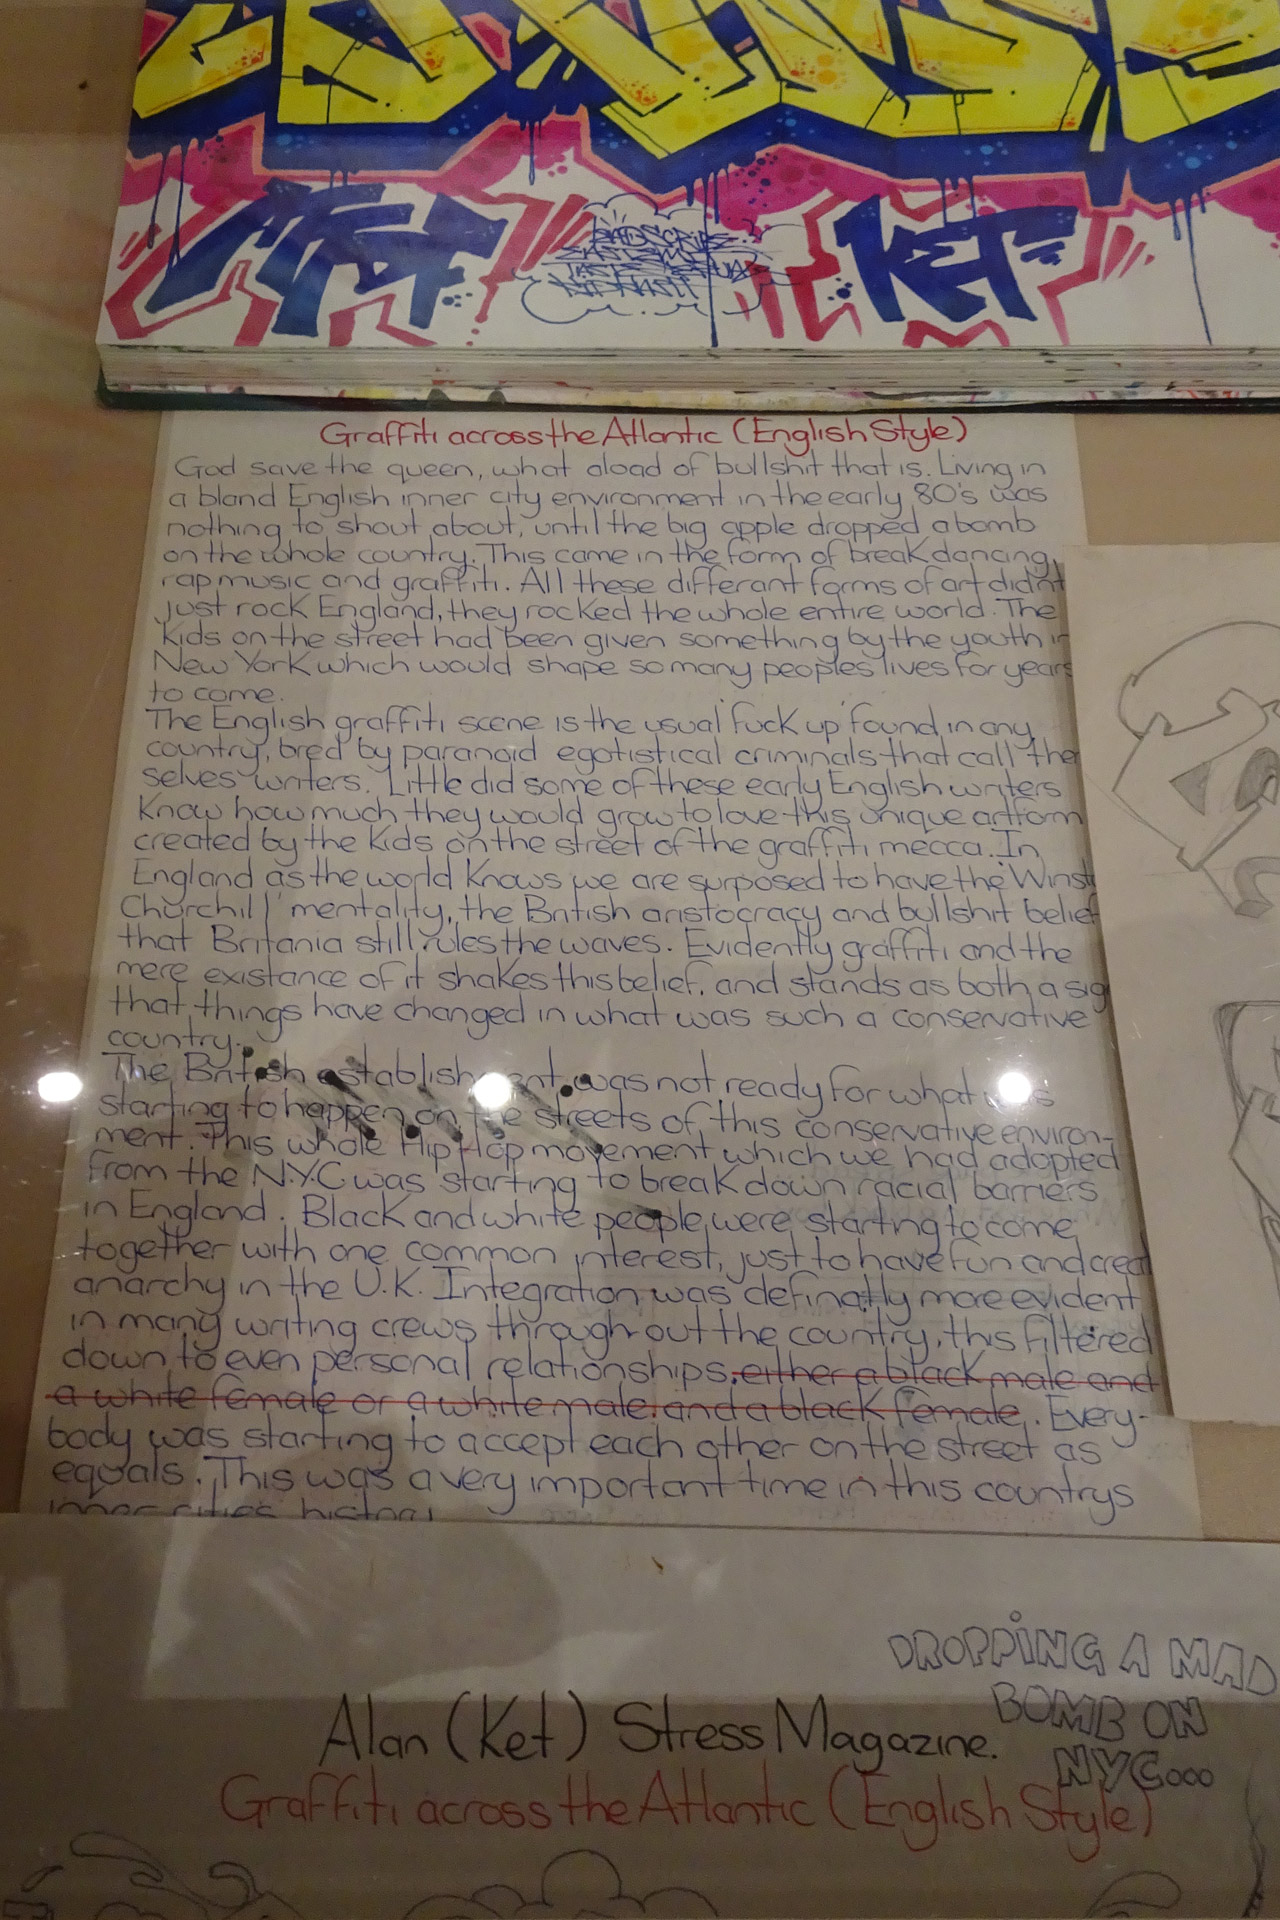 KET
Graffiti across the Atlantic (English Style)
God save the queen, what aload of bullshit that is. Living in
a bland English inner city environment in the early 80's was
nothing to shout about, until the big apple dropped a bomb
on the whole country. This came in the form of breakdancing,
rap music and graffiti. All these differant forms of art didn't
just rock England, they rocked the whole entire world. The
kids on the street had been given something by the youth in
New York which would shape so many peoples lives for years
to come.
The English graffiti scene is the usual 'fuck up' found in any
country, bred by paranoid egotistical criminals that call the
selves writers. Little did some of these early English writers
know how much they would grow to love this unique artform
created by the kids on the street of the graffiti mecca. In
England as the world knows we are surposed to have the 'Winst
Churchill' mentality, the British aristocracy and bullshit belief
that Britania still rules the waves. Evidently graffiti and the
mere existance of it shakes this belief, and stands as both a sig
that things have changed in what was such a conservative
country.
The British establishment was not ready for what was
starting to happen on the streets of this conservative environ-
ment. This whole Hip Hop movement which we had adopted
from the N.Y.C was starting to break down racial barriers
in England. Black and white people were starting to come
together with one common interest, just to have fun and creat
anarchy in the U.K. Integration was definatly more evident
in many writing crews through out the country, this filtered
down to even personal relationships, either a black male and
a white female or a white male and a black female. Every-
body was starting to accept each other on the street as
equals. This was a very important time in this countrys
inner cities history
DROPPING A MAD
BOMB ON
NYC...
Alan (Ket) Stress Magazine.
Graffiti across the Atlantic (English Style)